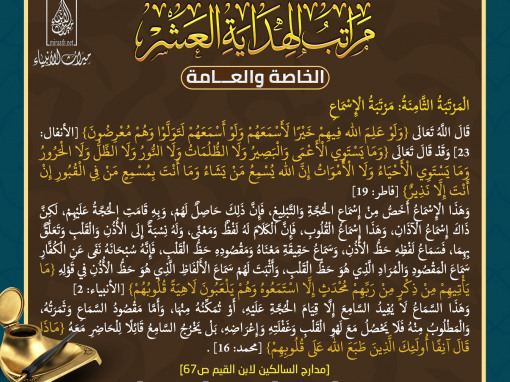 مَرَاتِبُ الهِدَايَةِ العَشْر
ميراث الأنبياء
miraath.net
الخاصة والعـــامة
الْمَرْتَبَةُ الثَّامِنَةُ: مَرْتَبَةُ الْإِسْمَاعِ
قَالَ اللَّهُ تَعَالَى {وَلَوْ عَلِمَ اللَّه فِيهِمْ خَيْرًا لَأَسْمَعَهُمْ وَلَوْ أَسْمَعَهُمْ لَتَوَلَّوْا وَهُمْ مُعْرِضُونَ} [الأنفال:
23] وَقَدْ قَالَ تَعَالَى {وَمَا يَسْتَوِي الْأَعْمَى وَالْبَصِيرُ وَلَا الظُّلُمَاتُ وَلَا النُّورُ وَلَا الظِّلُّ وَلَا الْحَرُورُ
وَمَا يَسْتَوِي الْأَحْيَاءُ وَلَا الْأَمْوَاتُ إِنَّ اللَّه يُسْمِعُ مَنْ يَشَاءُ وَمَا أَنْتَ بِمُسْمِعٍ مَنْ فِي الْقُبُورِ إِنْ
أَنْتَ إِلَّا نَذِيرٌ} [فاطر: 19]
وَهَذَا الْإِسْمَاعُ أَخَصُّ مِنْ إِسْمَاعِ الْحُجَّةِ وَالتَّبْلِيغِ، فَإِنَّ ذَلِكَ حَاصِلٌ لَهُمْ، وَبِهِ قَامَتِ الْحُجَّةُ عَلَيْهِمْ، لَكِنَّ
ذَاكَ إِسْمَاعُ الْآذَانِ، وَهَذَا إِسْمَاعُ الْقُلُوبِ، فَإِنَّ الْكَلَامَ لَهُ لَفْظٌ وَمَعْنًى، وَلَهُ نِسْبَةٌ إِلَى الْأُذُنِ وَالْقَلْبِ وَتَعَلُّقٌ
بِهِمَا، فَسَمَاعُ لَفْظِهِ حَظُّ الْأُذُنِ، وَسَمَاعُ حَقِيقَةِ مَعْنَاهُ وَمَقْصُودِهِ حَظُّ الْقَلْبِ، فَإِنَّهُ سُبْحَانَهُ نَفَى عَنِ الْكُفَّارِ
سَمَاعَ الْمَقْصُودِ وَالْمُرَادِ الَّذِي هُوَ حَظُّ الْقَلْبِ، وَأَثْبَتَ لَهُمْ سَمَاعَ الْأَلْفَاظِ الَّذِي هُوَ حَظُّ الْأُذُنِ فِي قَوْلِهِ {مَا
يَأْتِيهِمْ مِنْ ذِكْرٍ مِنْ رَبِّهِمْ مُحْدَثٍ إِلَّا اسْتَمَعُوهُ وَهُمْ يَلْعَبُونَ لَاهِيَةً قُلُوبُهُمْ} [الأنبياء: 2]
وَهَذَا السَّمَاعُ لَا يُفِيدُ السَّامِعَ إِلَّا قِيَامَ الْحُجَّةِ عَلَيْهِ، أَوْ تَمَكُّنَهُ مِنْهَا، وَأَمَّا مَقْصُودُ السَّمَاعِ وَثَمَرَتُهُ،
وَالْمَطْلُوبُ مِنْهُ فَلَا يَحْصُلُ مَعَ لَهْوِ الْقَلْبِ وَغَفْلَتِهِ وَإِعْرَاضِهِ، بَلْ يَخْرُجُ السَّامِعُ قَائِلًا لِلْحَاضِرِ مَعَهُ {مَاذَا
قَالَ آنِفًا أُولَئِكَ الَّذِينَ طَبَعَ اللَّه عَلَى قُلُوبِهِمْ} [محمد: 16] .
[مدارج السالكين لابن القيم ص67]